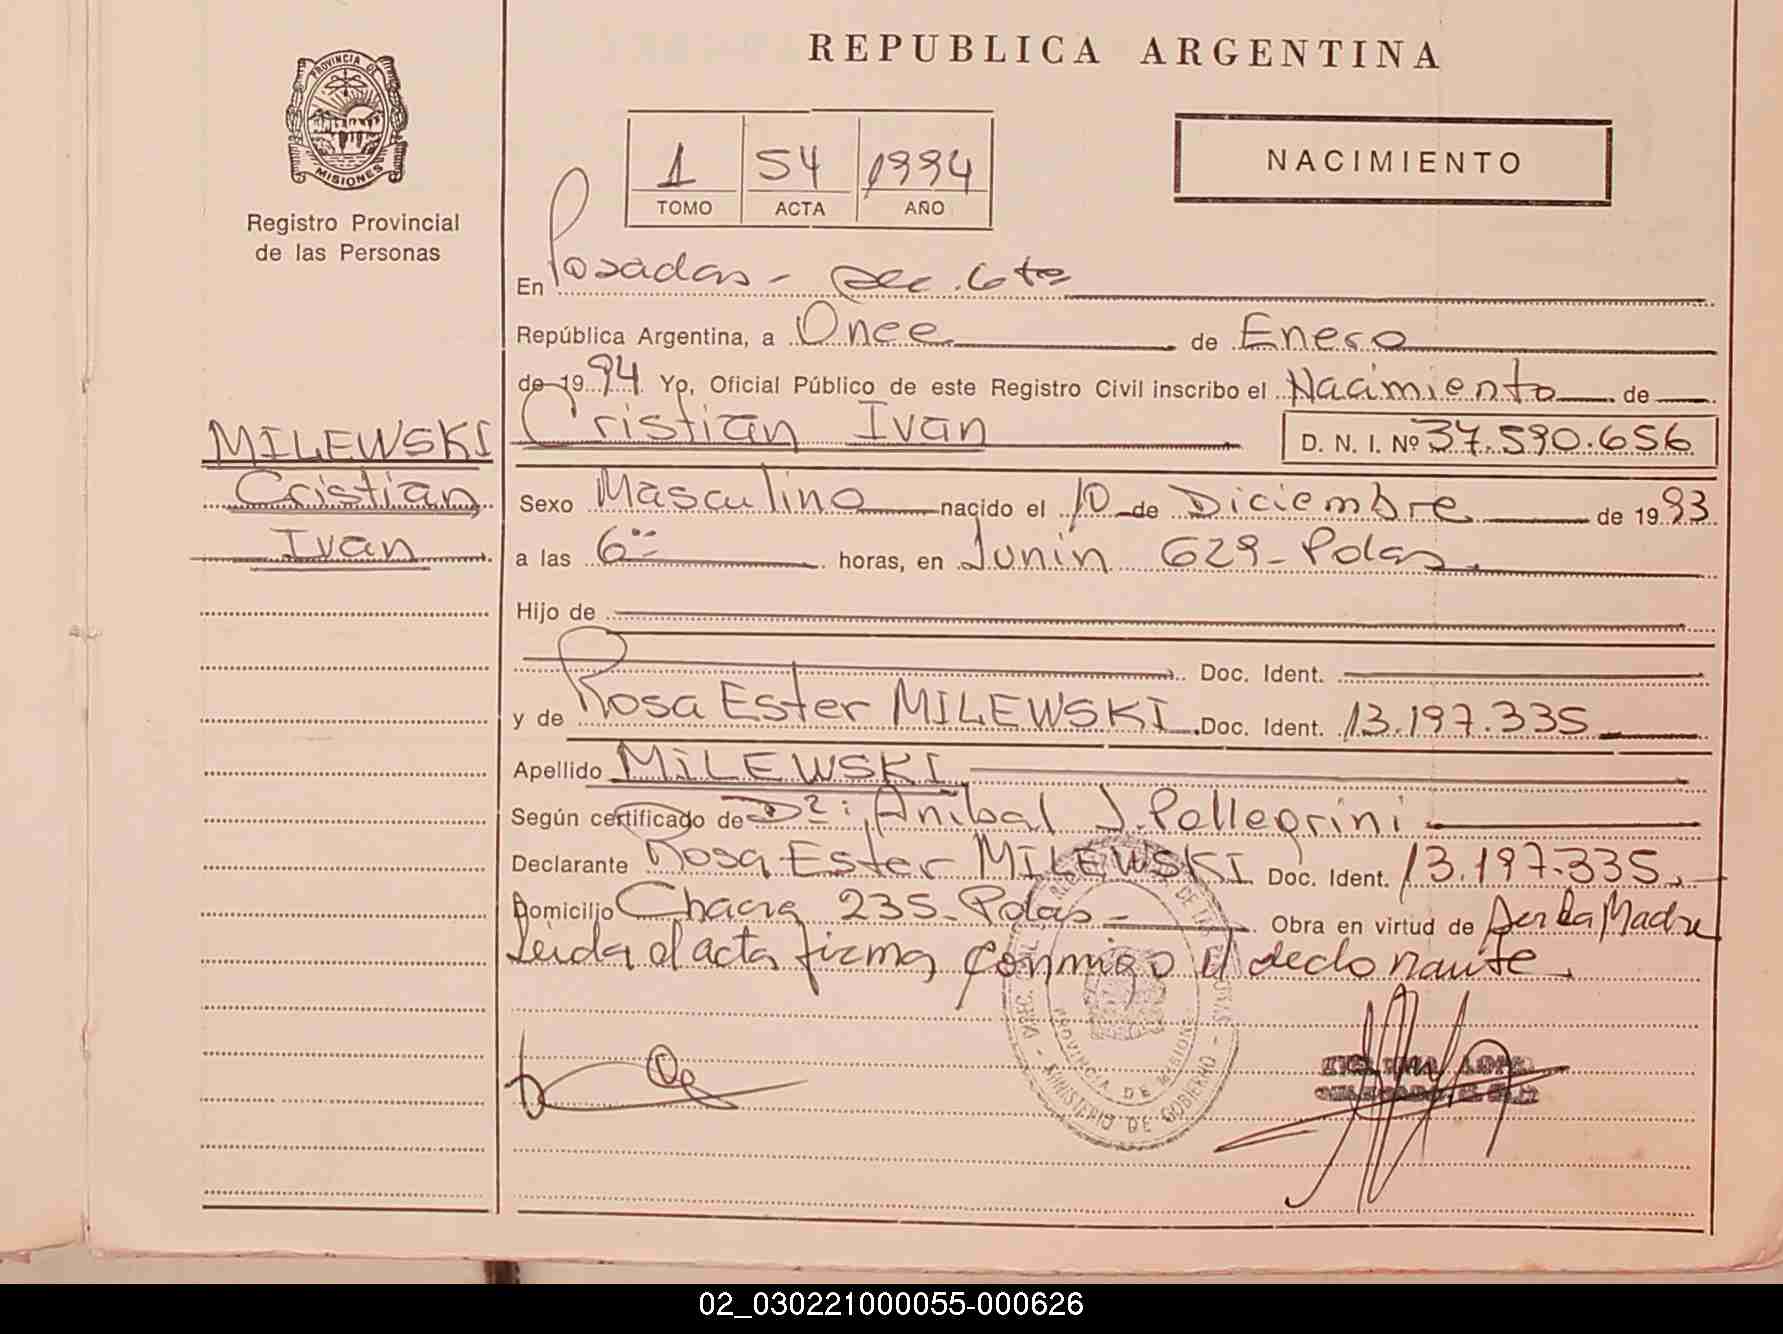 REPUBLICA ARGENTINA
PROVINCIA DE
MISIONES
Registro Provincial
de las Personas
1 54 1994
TOMO ACTA AÑO
NACIMIENTO
En Posadas - Sec. 6ta
República Argentina, a Once de Enero
de 1994 Yo, Oficial Público de este Registro Civil inscribo el Nacimiento de
MILEWSKI
Cristian
Ivan
Cristian Ivan D. N. I. Nº 37.590.656
Sexo Masculino nacido el 10 de Diciembre de 1993
a las 6 horas, en Junin 629 - Pdas.
Hijo de
Doc. Ident.
y de Rosa Ester MILEWSKI Doc. Ident. 13.197.335
Apellido MILEWSKI
Según certificado de Aníbal J. Pellegrini
Declarante Rosa Ester MILEWSKI Doc. Ident. 13.197.335
Domicilio Chacra 235 - Pdas - Obra en virtud de ser la Madre
Leida el acta firma conmigo el declarante.
PROVINCIA DE MISIONES
MINISTERIO DE GOBIERNO
02_030221000055-000626